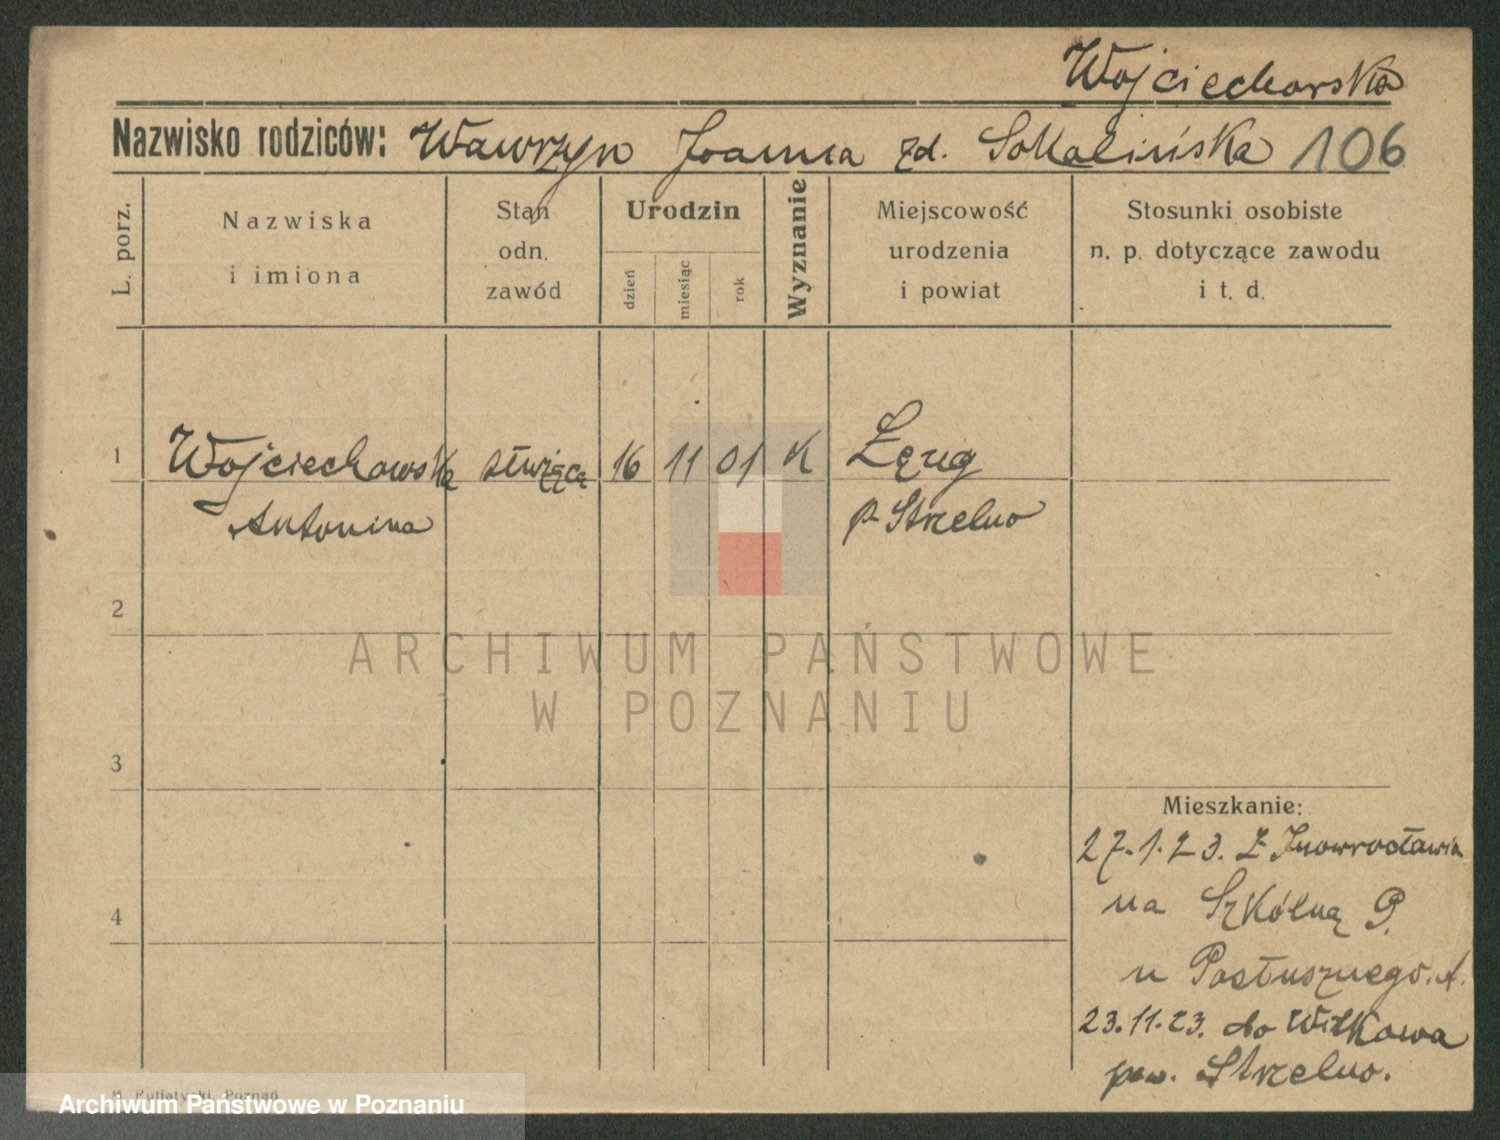 Wojciechowska
Nazwisko rodziców: Wawrzyn Joanna zd. Sokalińska 106
L. porz.
Nazwiska
i imiona
Stan
odn.
zawód
Urodzin
dzień
miesiąc
rok
Wyznanie
Miejscowość
urodzenia
i powiat
Stosunki osobiste
n. p. dotyczące zawodu
i t. d.
1 Wojciechowska służąca 16 11 01 K
Antonina p Strzelno
2
3
4
Mieszkanie:
27.1.23. z Inowrocławia
na Szkólną P.
u Posłusznego.
23.11.23. do Witkowa
pow. Strzelno.
ARCHIWUM PAŃSTWOWE
W POZNANIU
Poznań
Archiwum Państwowe w Poznaniu